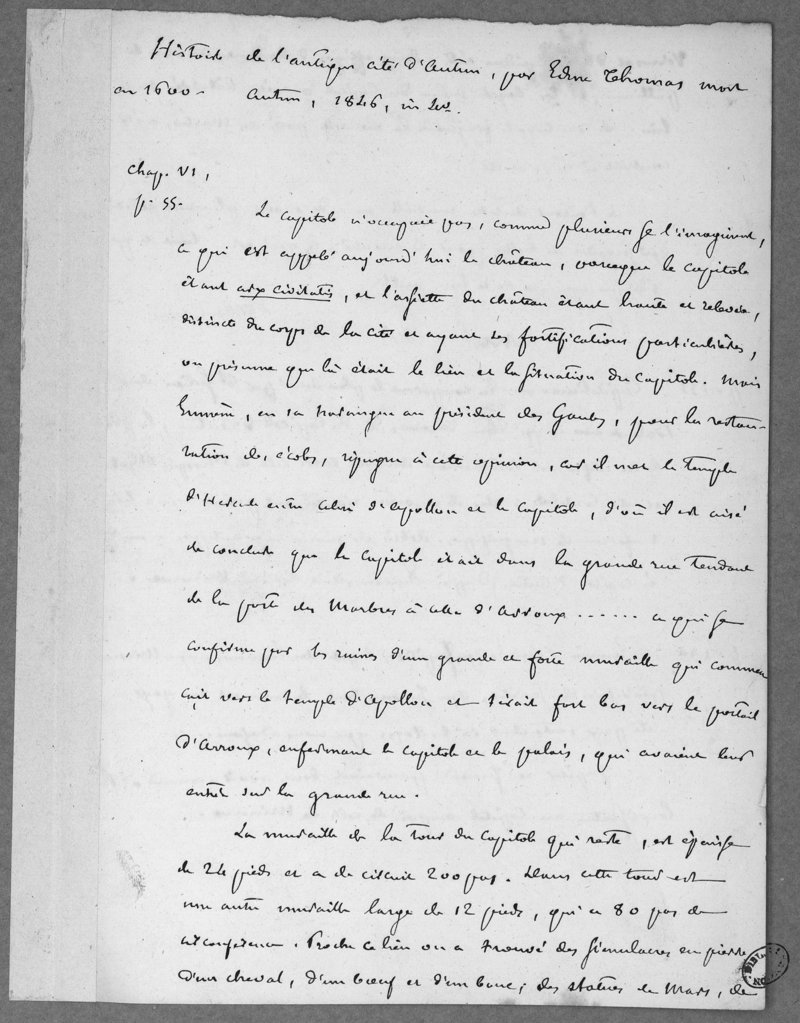 Histoire de l'antique cité d'Autun, par Edme Thomas mort
en 1600 - Autun, 1846, in 4º.
chap. VI,
p. 55.
Le capitole n'occupait pas, comme plusieurs se l'imaginent,
ce qui est appelé aujourd'hui le château, parceque le capitole
étant arx civitatis, et l'assiette du château étant haute et relevée,
distincte du corps de la cité et ayant ses fortifications particulières,
on présume que là était le lieu et la situation du capitole. Mais
Eumène, en sa harangue au président des Gaules, pour la restau-
ration des écoles, répugne à cette opinion, car il met le temple
d'Hercule entre celui d'Apollon et le capitole, d'où il est aisé
de conclure que le capitole était dans la grande rue tendant
de la porte des Marbres à celle d'Arroux ...... ce qui se
confirme par les ruines d'une grande et forte muraille qui commen
çait vers le temple d'Apollon et tirait fort bas vers le portail
d'Arroux, enfermant le capitole et le palais, qui avaient leur
entrée sur la grande rue.
La muraille de la tour du capitole qui reste, est épaisse
de 24 pieds et a de circuit 200 pas. Dans cette tour est
une autre muraille large de 12 pieds, qui a 80 pas de
circonférence. Proche ce lieu on a trouvé des simulacres en pierre
d'un cheval, d'un bœuf et d'un bouc; des statues de Mars, de